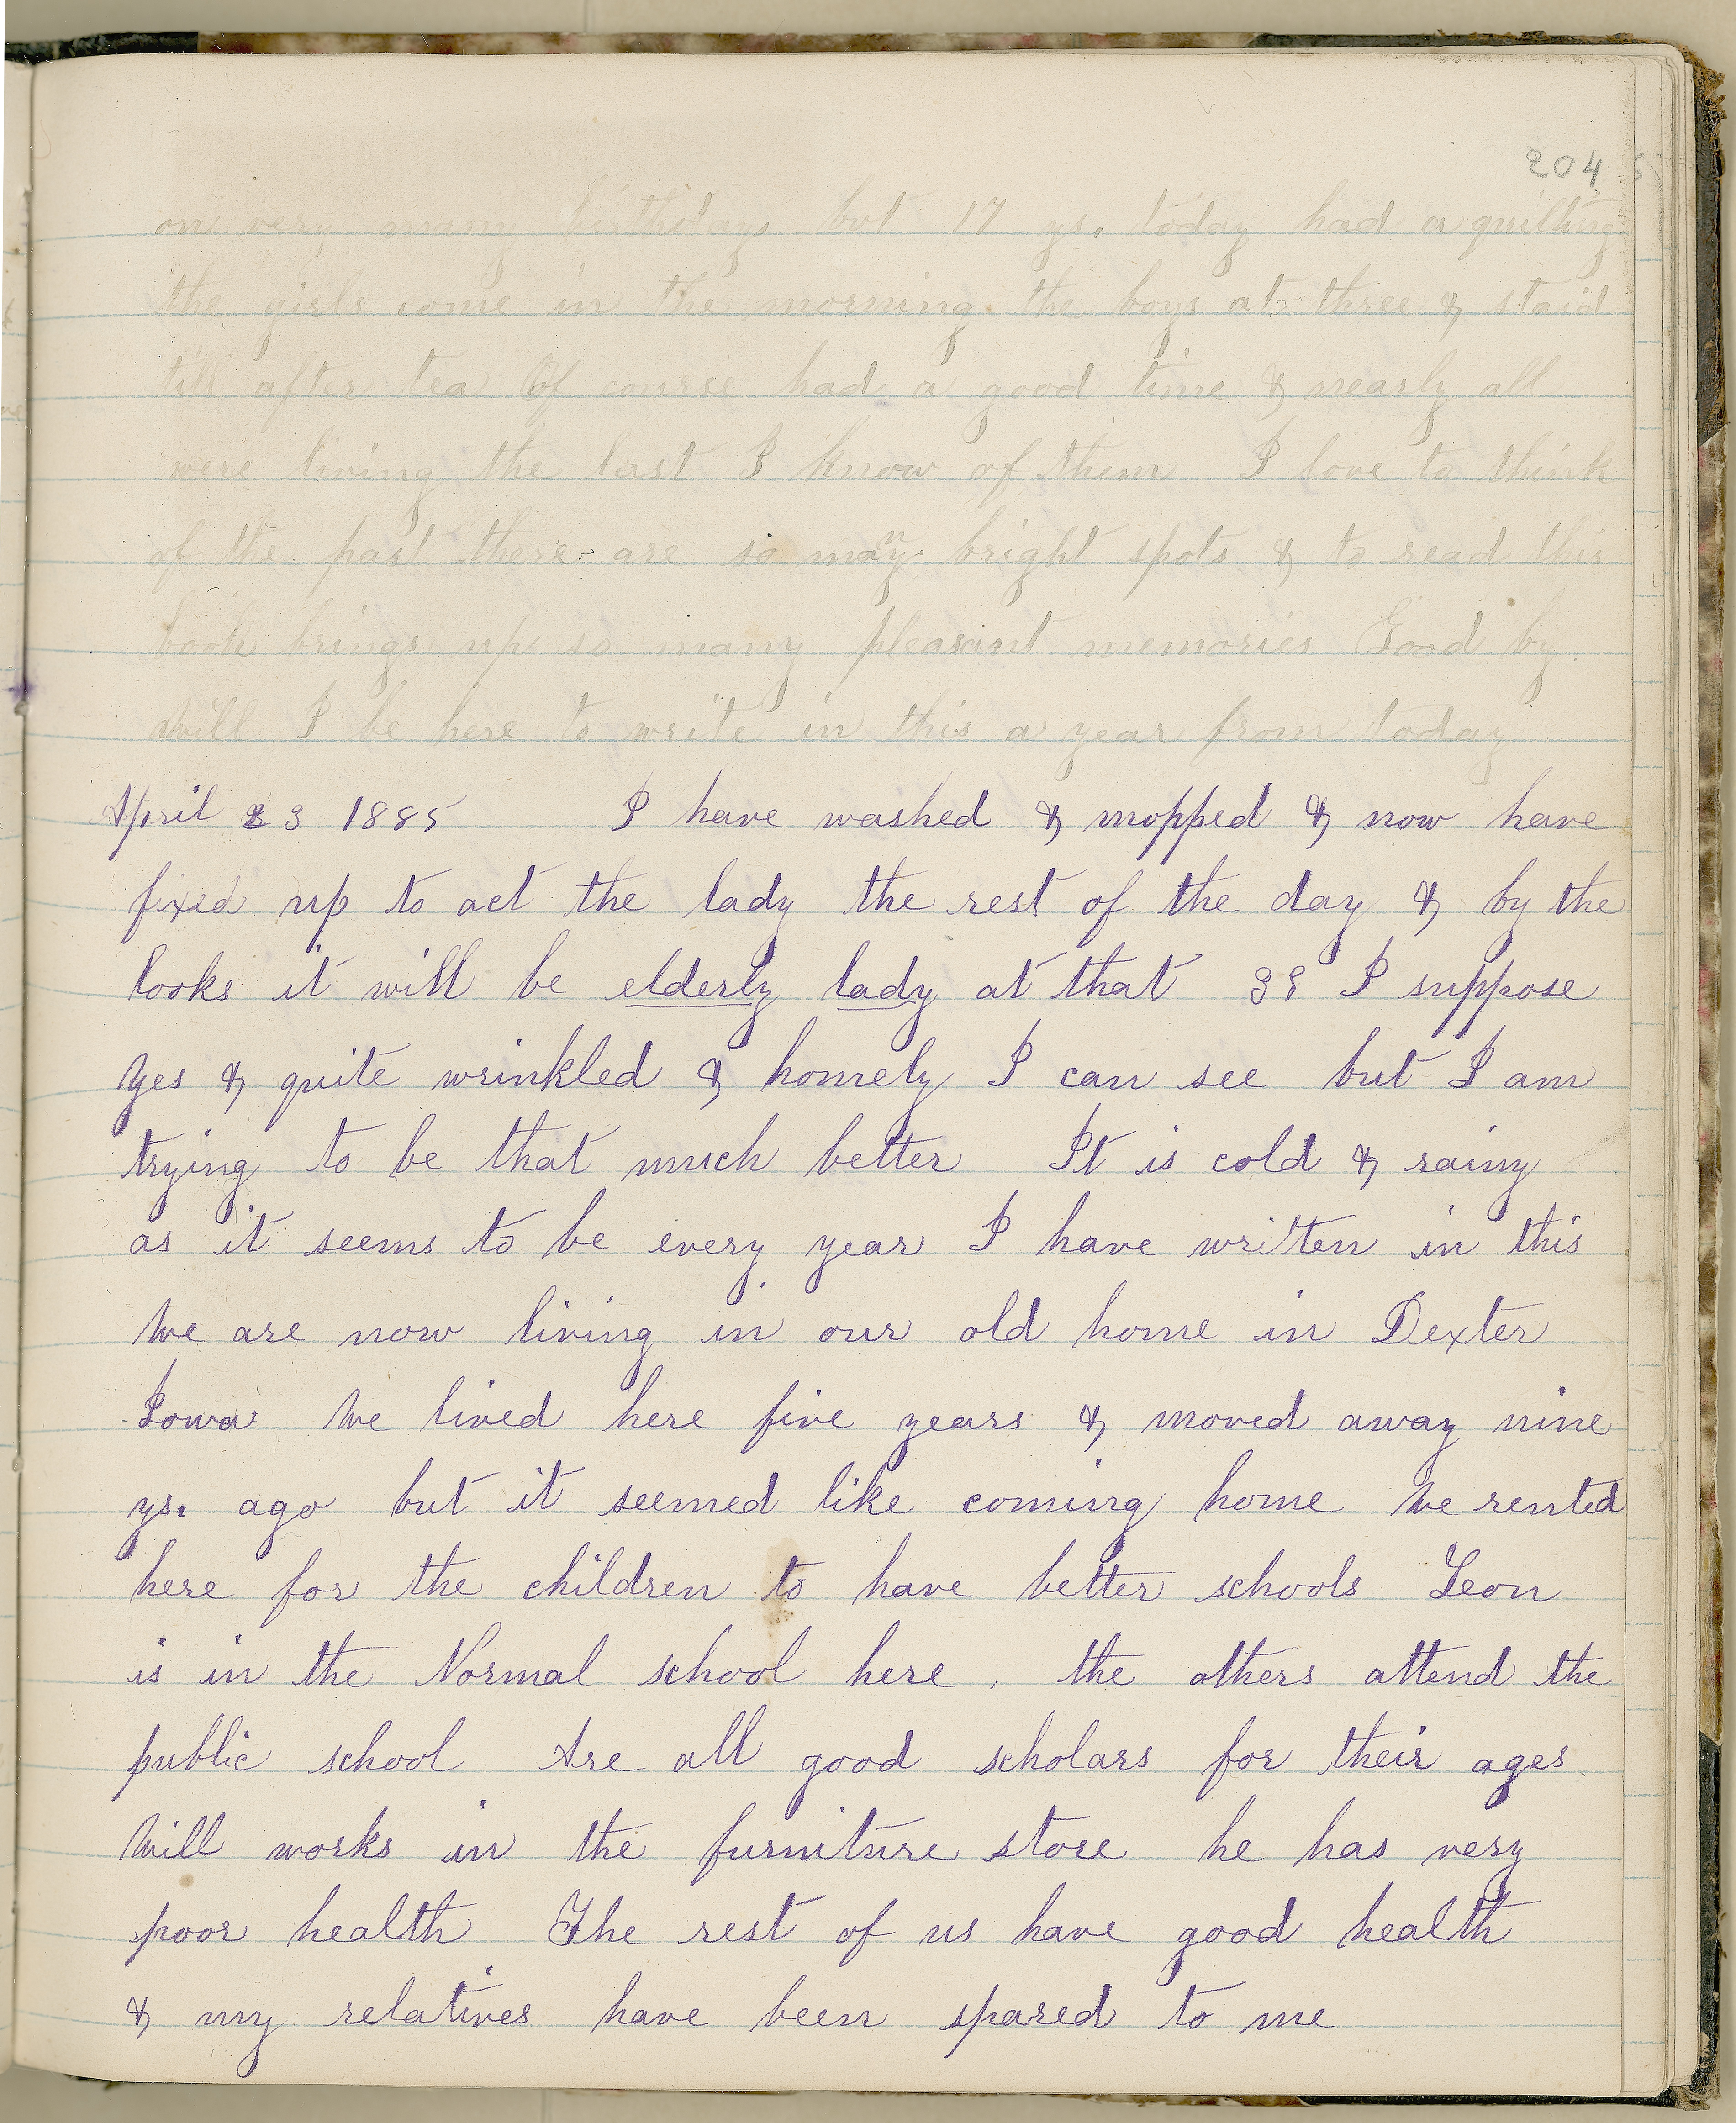 204
on very many birthdays but 17 ys. today had a quilting
the girls come in the morning the boys at three & staid
till after tea Of course had a good time & nearly all
were living the last I know of them I love to think
of the past there are so many bright spots & to read this
book brings up so many pleasant memories Good by
Will I be here to write in this a year from today
April 23 1885 I have washed & mopped & now have
fixed up to act the lady the rest of the day & by the
looks it will be elderly lady at that 38 I suppose
Yes & quite wrinkled & homely I can see but I am
trying to be that much better It is cold & rainy
as it seems to be every year I have written in this
We are now living in our old home in Dexter
Iowa We lived here five years & moved away nine
ys. ago but it seemed like coming home We rented
here for the children to have better schools Leon
is in the Normal school here. the others attend the
public school Are all good scholars for their ages.
Will works in the furniture store he has very
poor health The rest of us have good health
& my relatives have been spared to me